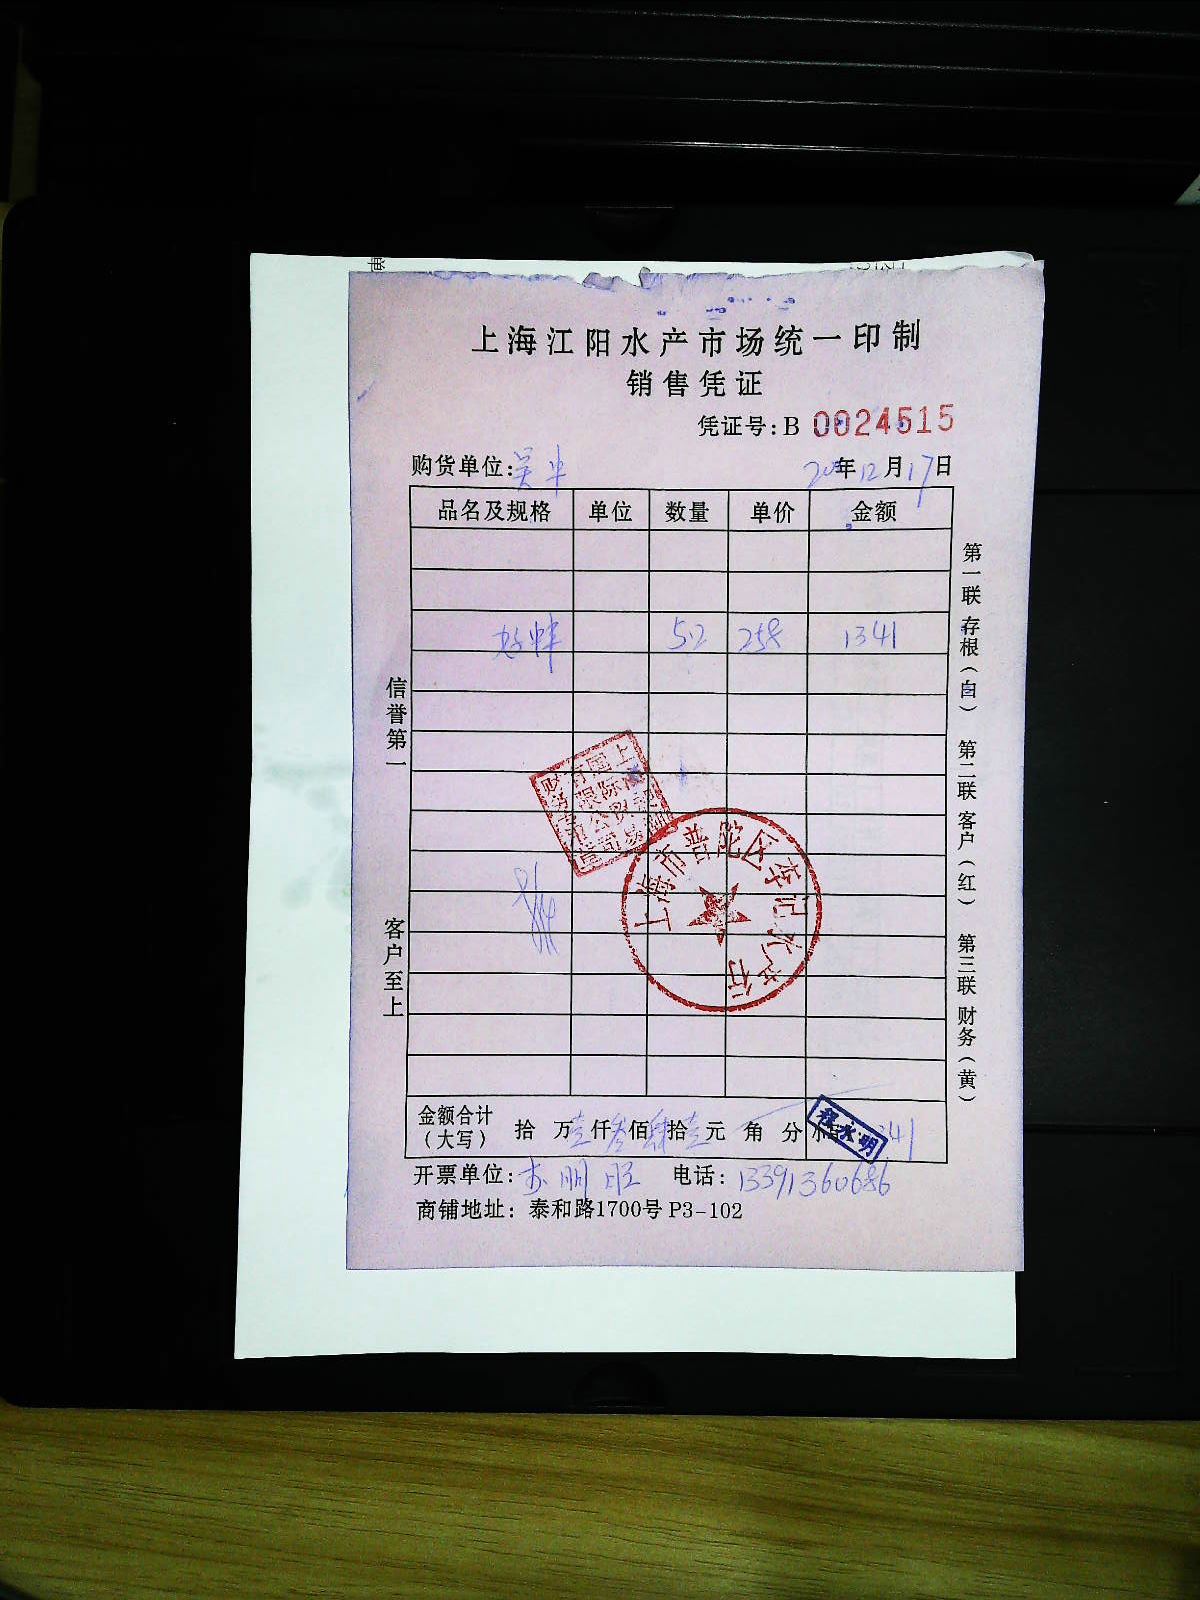 上海江阳水产市场统一印制
销售凭证
凭证号：B 0024515
购货单位： 年12月17日
品名及规格 单位 数量 单价 金额
5.2 258 1341
信誉第一
客户至上
第一联 存根（白） 第二联 客户（红） 第三联 财务（黄）
上海市普陀区李记水产行
金额合计（大写） 拾 万壹仟叁佰肆拾壹元 角 分
程水明
开票单位： 电话：13391360686
商铺地址：泰和路1700号 P3-102